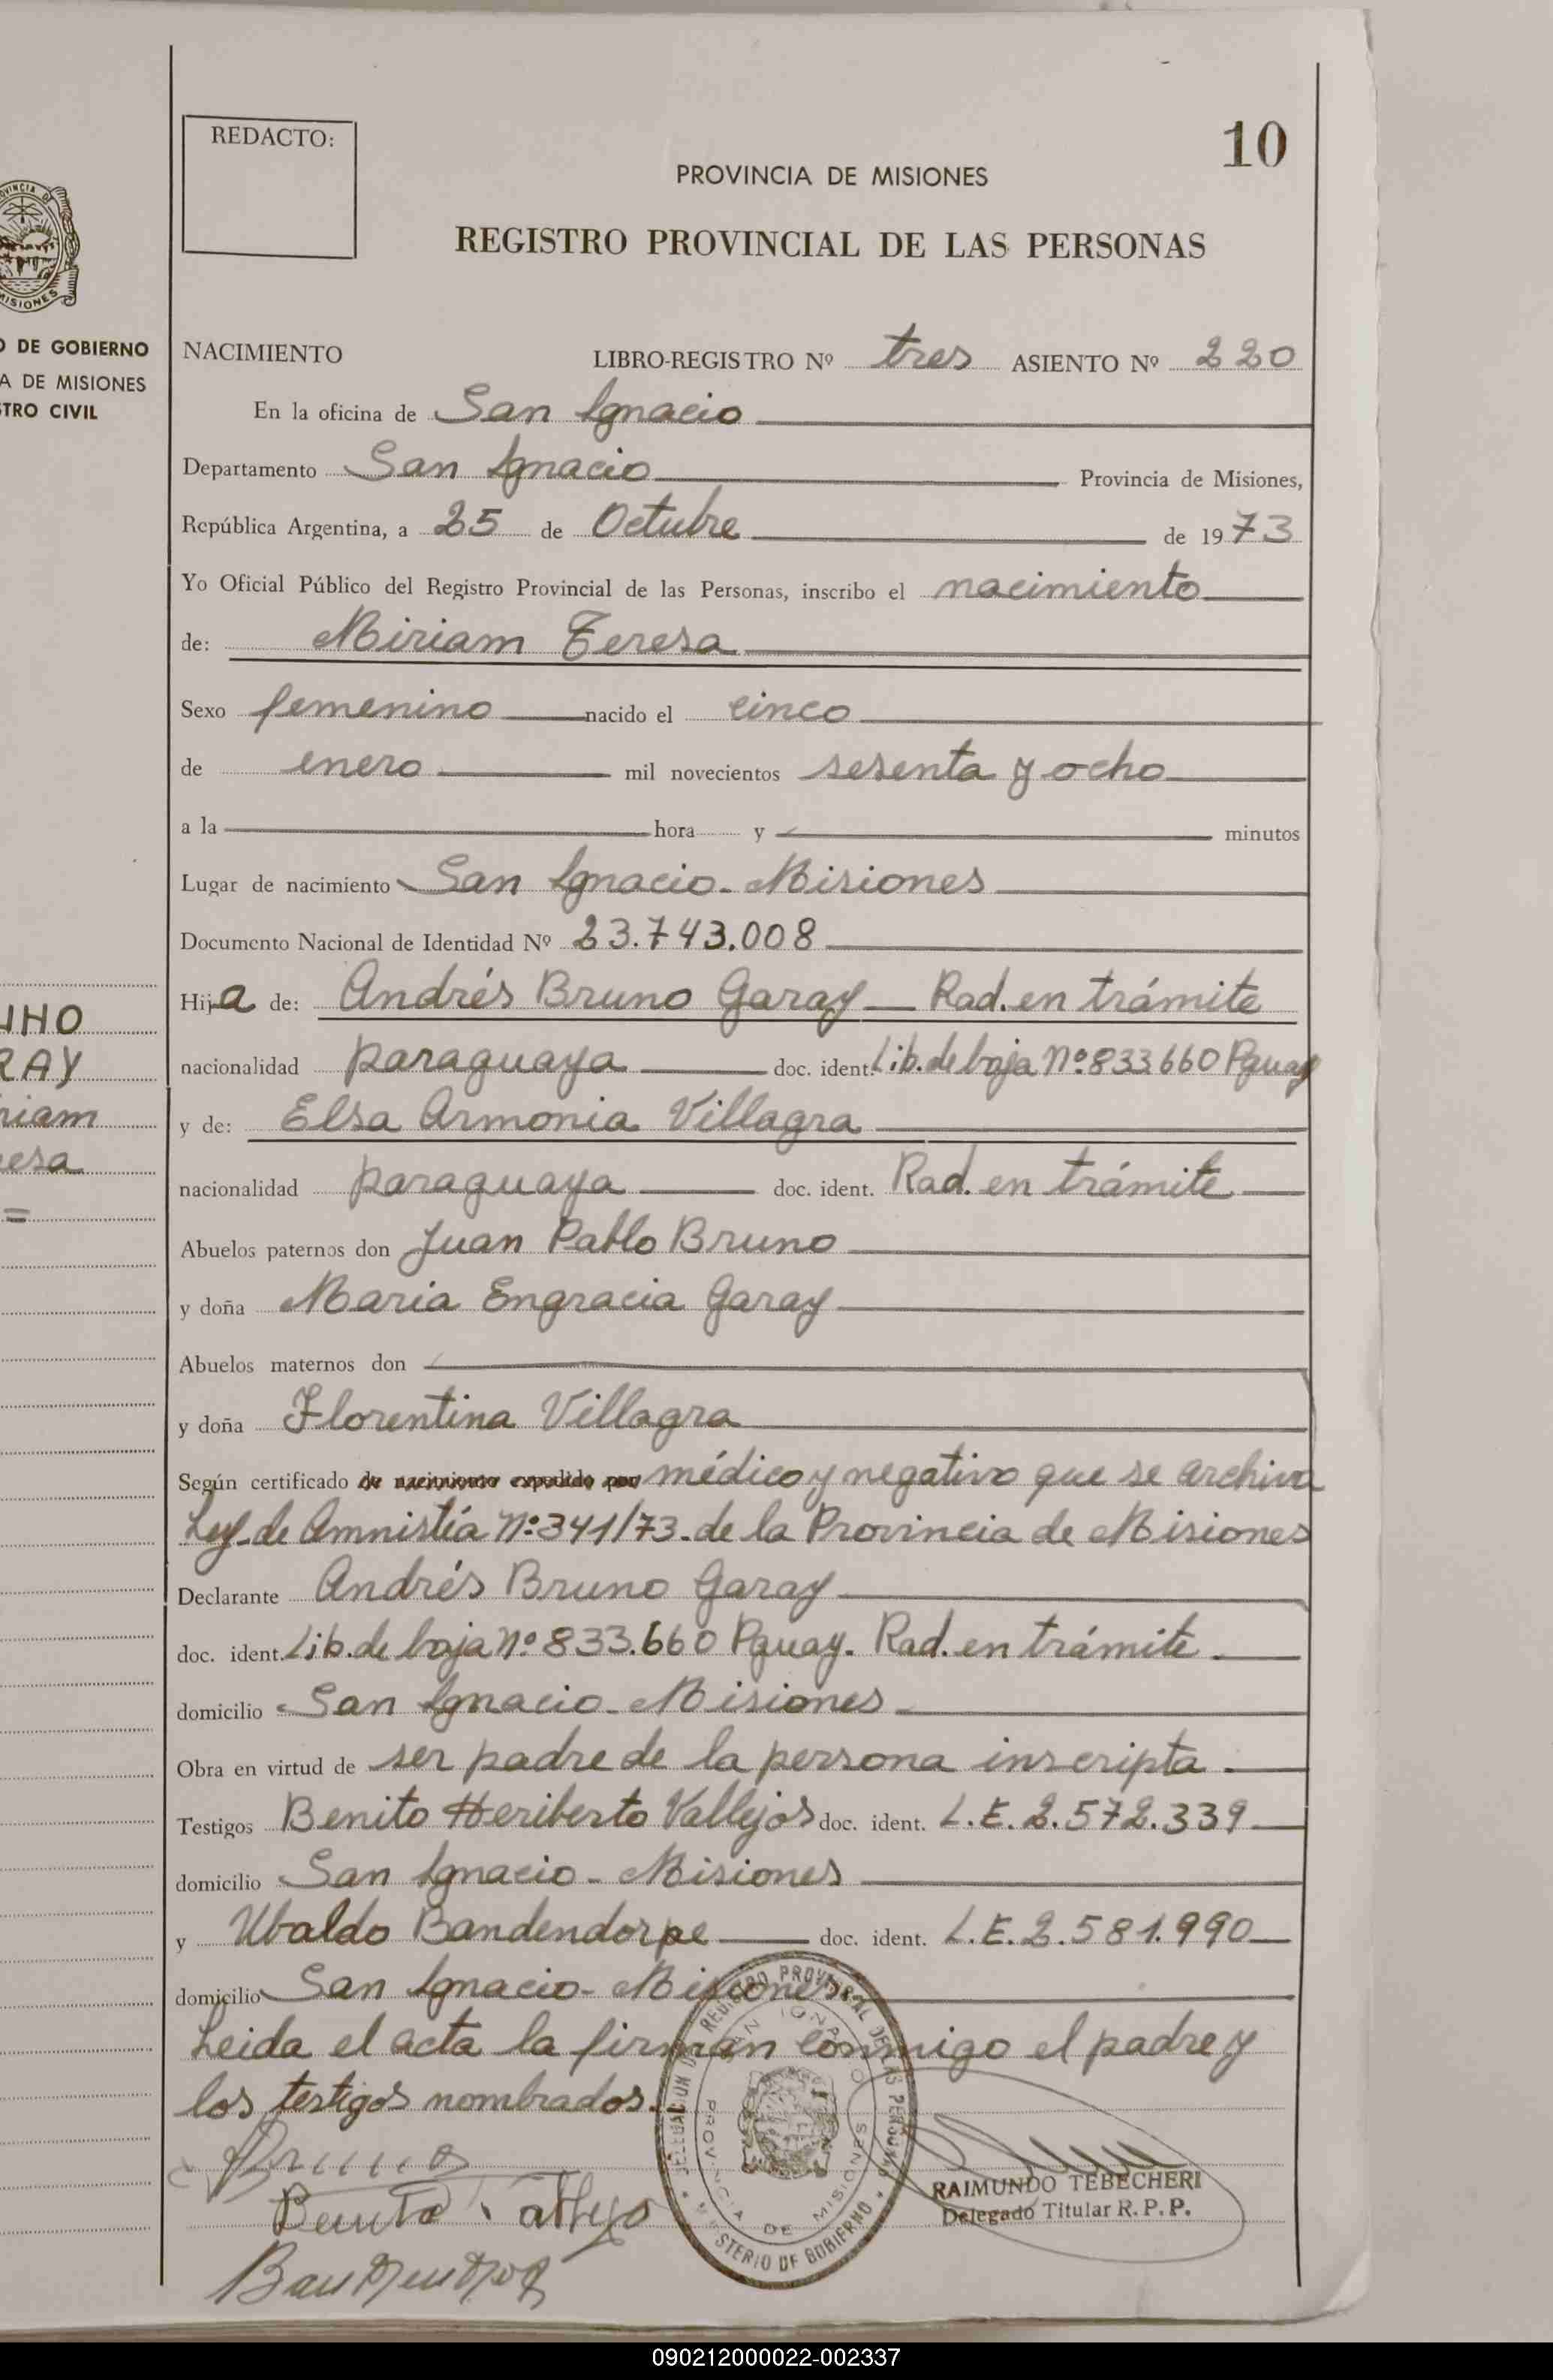 REDACTO:
10
PROVINCIA DE MISIONES
REGISTRO PROVINCIAL DE LAS PERSONAS
DE GOBIERNO
A DE MISIONES
TRO CIVIL
NACIMIENTO LIBRO-REGISTRO Nº tres ASIENTO Nº 220
En la oficina de San Ignacio
Departamento San Ignacio Provincia de Misiones,
República Argentina, a 25 de Octubre de 1973
Yo Oficial Público del Registro Provincial de las Personas, inscribo el nacimiento
de: Miriam Teresa
Sexo femenino nacido el cinco
de enero mil novecientos sesenta y ocho
a la hora y minutos
Lugar de nacimiento San Ignacio - Misiones
Documento Nacional de Identidad Nº 23.743.008
UNO
RAY
riam
esa
=
Hija de: Andrés Bruno Garay - Rad. en trámite
nacionalidad paraguaya doc. ident. Lib. de baja Nº 833660 Pguay
y de: Elsa Armonia Villagra
nacionalidad paraguaya doc. ident. Rad. en trámite
Abuelos paternos don Juan Pablo Bruno
y doña Maria Engracia Garay
Abuelos maternos don
y doña Florentina Villagra
Según certificado de nacimiento expedido por médico y negativo que se archiva
Ley de Amnistía Nº 341/73 - de la Provincia de Misiones
Declarante Andrés Bruno Garay
doc. ident. Lib. de baja Nº 833.660 Pguay. Rad. en trámite.
domicilio San Ignacio - Misiones
Obra en virtud de ser padre de la persona inscripta.
Testigos Benito Heriberto Vallejos doc. ident. L.E. 2.572.339
domicilio San Ignacio - Misiones
y Ubaldo Bandendorpe doc. ident. L.E. 2.581.990
domicilio San Ignacio - Misiones
Leida el acta la firman conmigo el padre y
los testigos nombrados.
DELEGACION DEL REGISTRO PROVINCIAL DE LAS PERSONAS
SAN IGNACIO
PROVINCIA DE MISIONES
MINISTERIO DE GOBIERNO
RAIMUNDO TEBECHERI
Delegado Titular R. P. P.
Bruno
Benito Vallejo
090212000022-002337